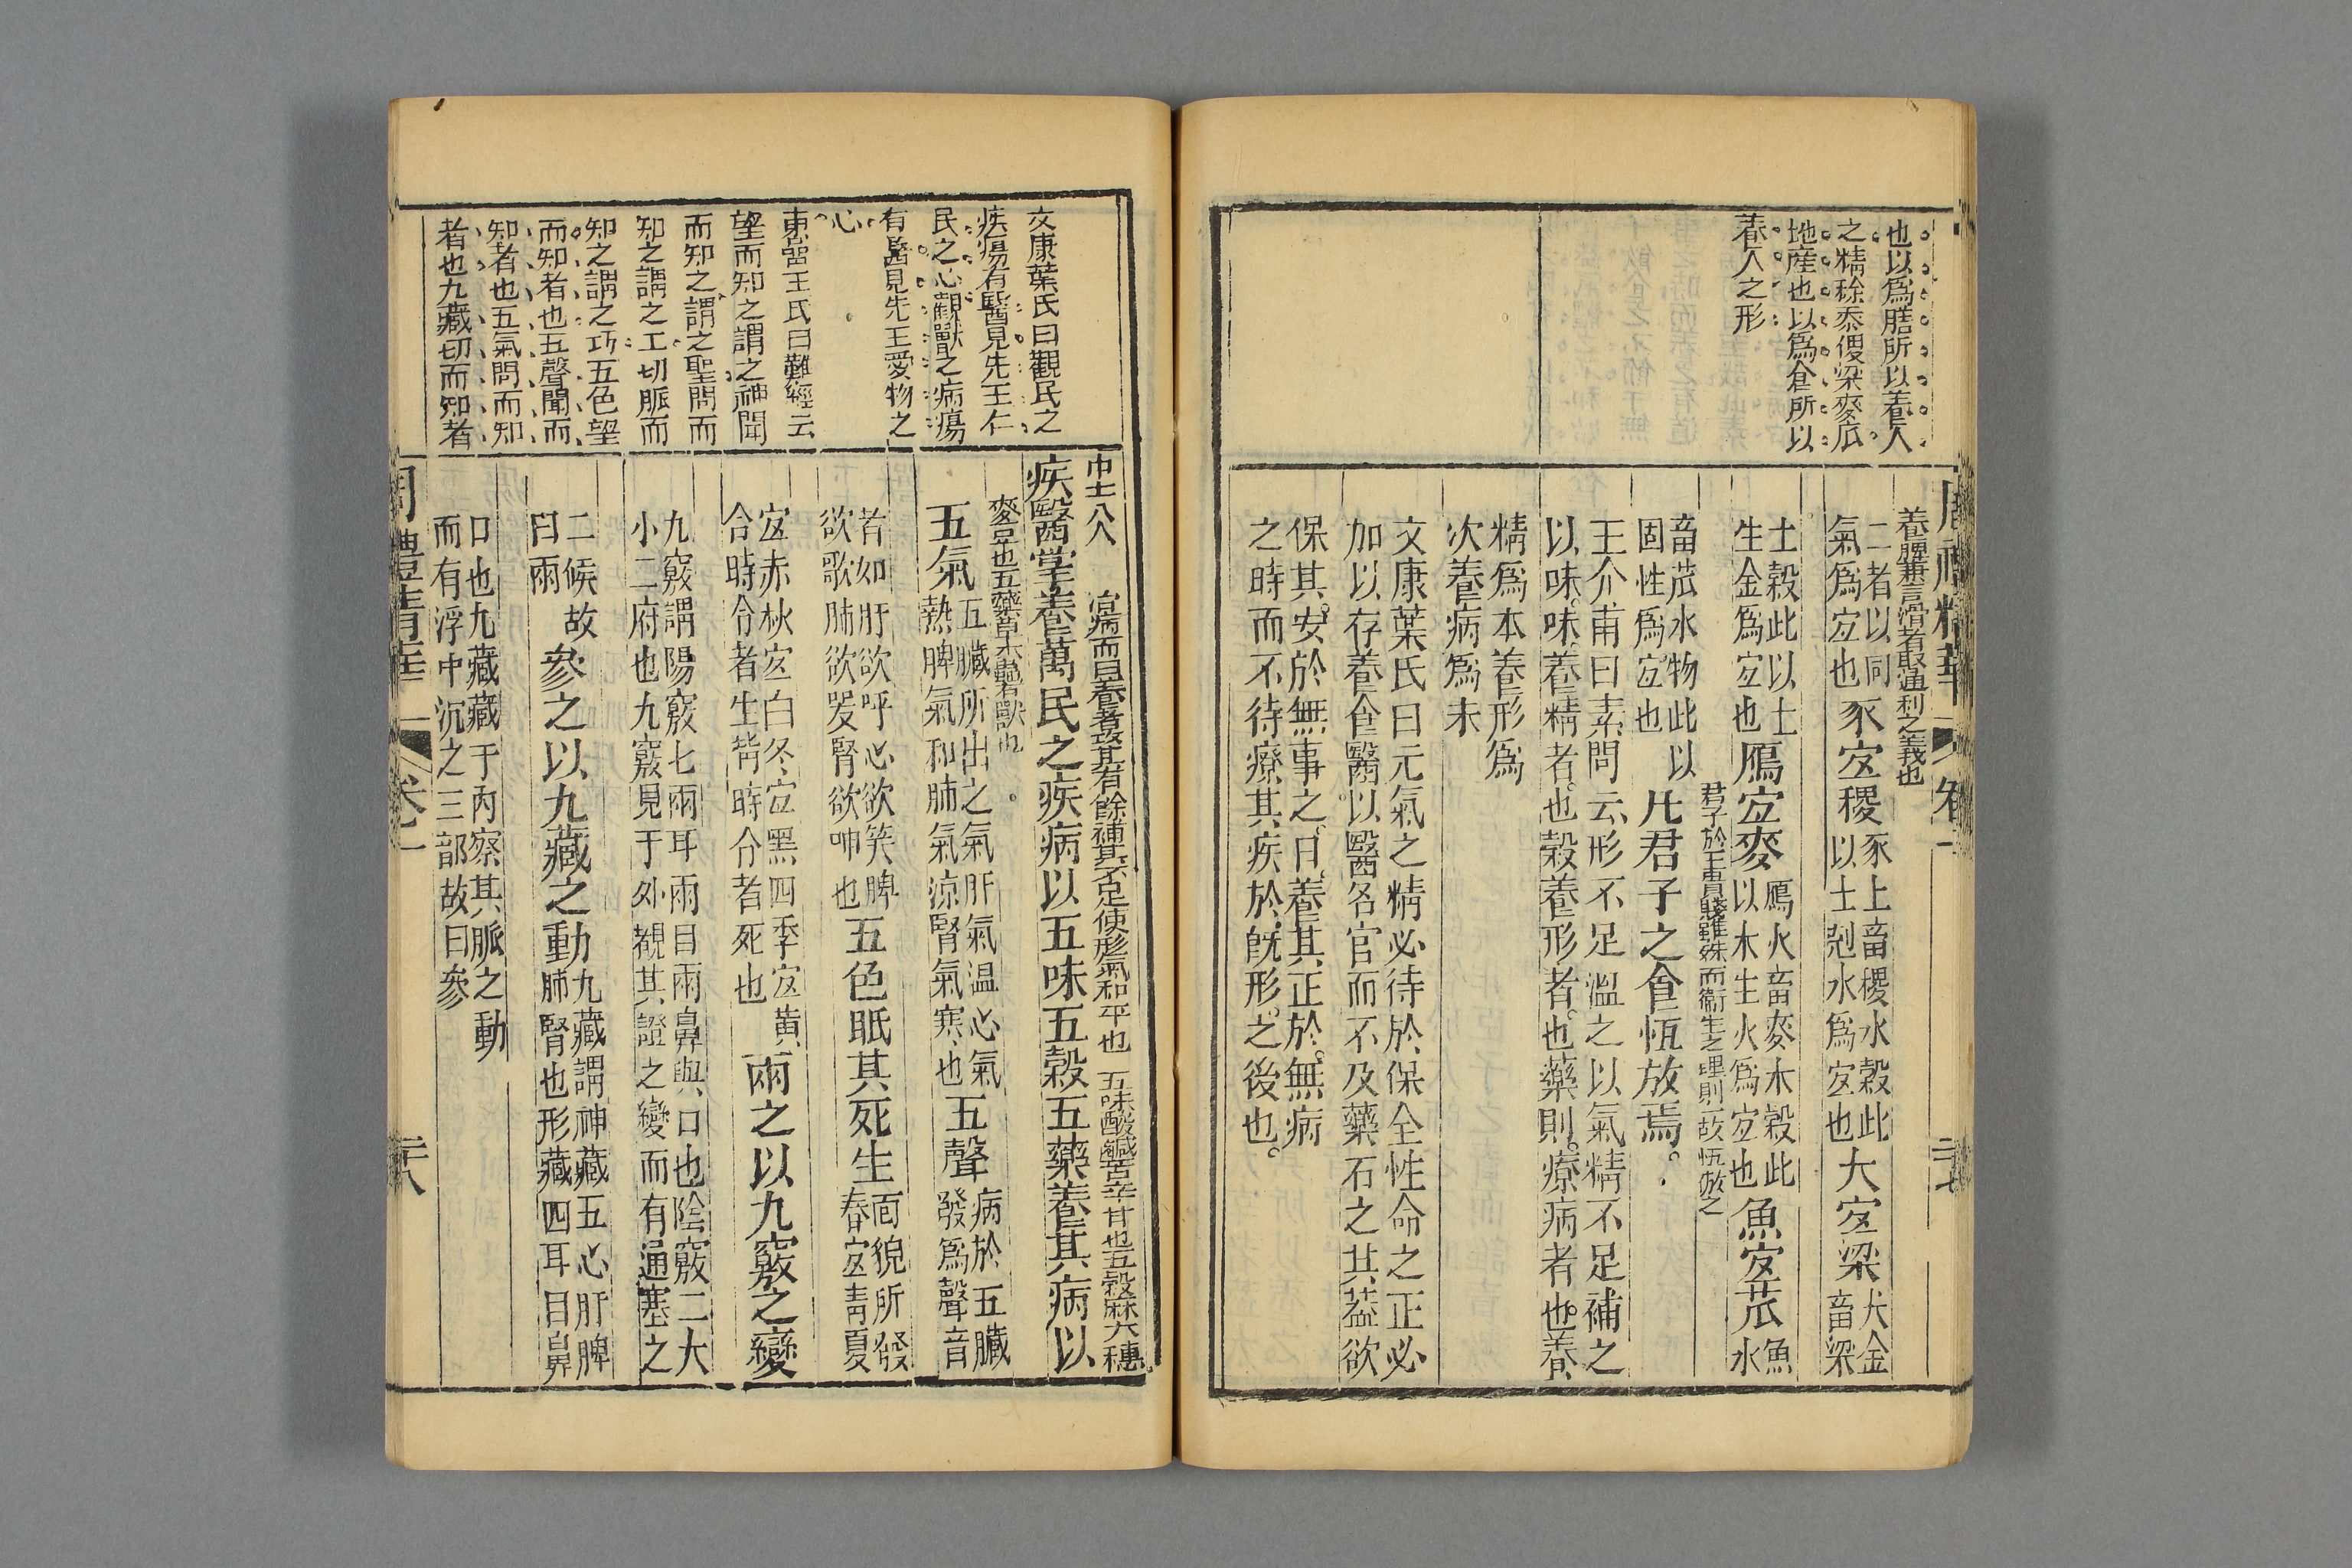 也以爲膳所以養人
之精稌黍稷粱麥苽
地産也以爲食所以
養人之形
周禮精華
卷一
二七
養脾兼言滑者取通利之義也
二者以同
氣爲宜也豕宜稷豕上畜稷水穀此
以土剋水爲宜也犬宜粱犬金
畜粱
土穀此以土
生金爲宜也鴈宜麥鴈火畜麥木穀此
以木生火爲宜也魚宜苽魚
水
君子於王貴賤雖殊而衞生之理則一故恆放之
畜苽水物此以
固性爲宜也凡君子之食恆放焉
王介甫曰素問云形不足溫之以氣精不足補之
以味味養精者也穀養形者也藥則療病者也養
精爲本養形爲
次養病爲末
文康葉氏曰元氣之精必待於保全性命之正必
加以存養食醫以醫名官而不及藥石之其蓋欲
保其安於無事之日養其正於無病
之時而不待療其疾於旣形之後也
文康葉氏曰觀民之
疾瘍有醫見先王仁
民之心觀獸之病瘍
有醫見先王愛物之
心
東喦王氏曰難經云
望而知之謂之神聞
而知之謂之聖問而
知之謂之工切脈而
知之謂之巧五色望
而知者也五聲聞而
知者也五氣問而知
者也九藏切而知者
中士八人
而曰養者故其有餘補其不足使形氣和平也 五味酸鹹苦辛甘也五穀麻六穗
疾醫掌養萬民之疾病以五味五穀五藥養其病以
麥豆也五藥草木蟲石穀也
五氣五臟所出之氣肝氣溫心氣
熱脾氣和肺氣涼腎氣寒也五聲病於五臟
發爲聲音
者如肝欲呼心欲笑脾
欲歌肺欲哭腎欲呻也五色眂其死生面貌所發
春宜靑夏
宜赤秋宜白冬宜黑四季宜黃
合時令者生背時令者死也兩之以九竅之變
九竅謂陽竅七兩耳兩目兩鼻與口也陰竅二大
小二府也九竅見于外觀其證之變而有通塞之
二候故
曰兩參之以九藏之動九藏謂神藏五心肝脾
肺腎也形藏四耳目鼻
口也九藏藏于內察其脈之動
而有浮中沉之三部故曰參
周禮精華
卷一
二八